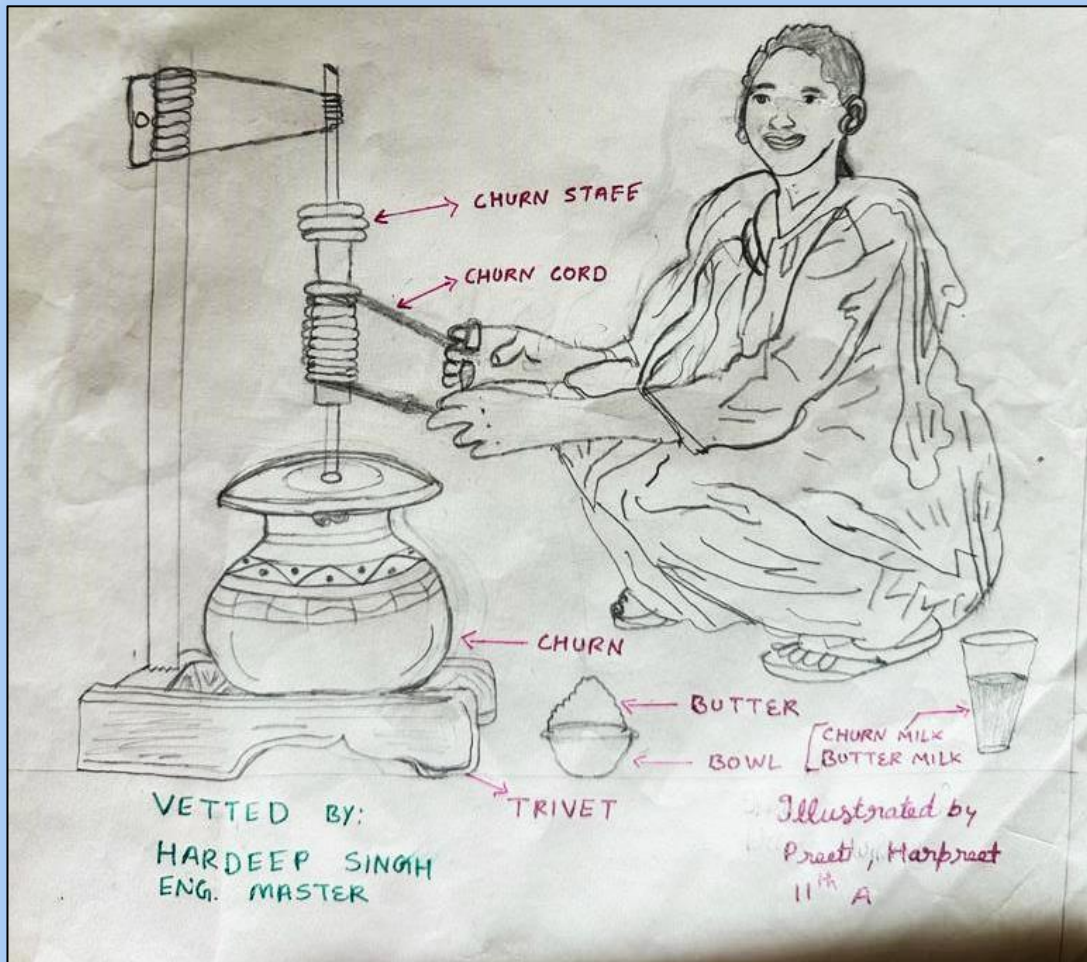 CHURN STAFF
CHURN CORD
CHURN
BUTTER
BOWL
CHURN MILK
BUTTER MILK
TRIVET
VETTED BY:
HARDEEP SINGH
ENG. MASTER
Illustrated by
Preeti, Harpreet
11th A